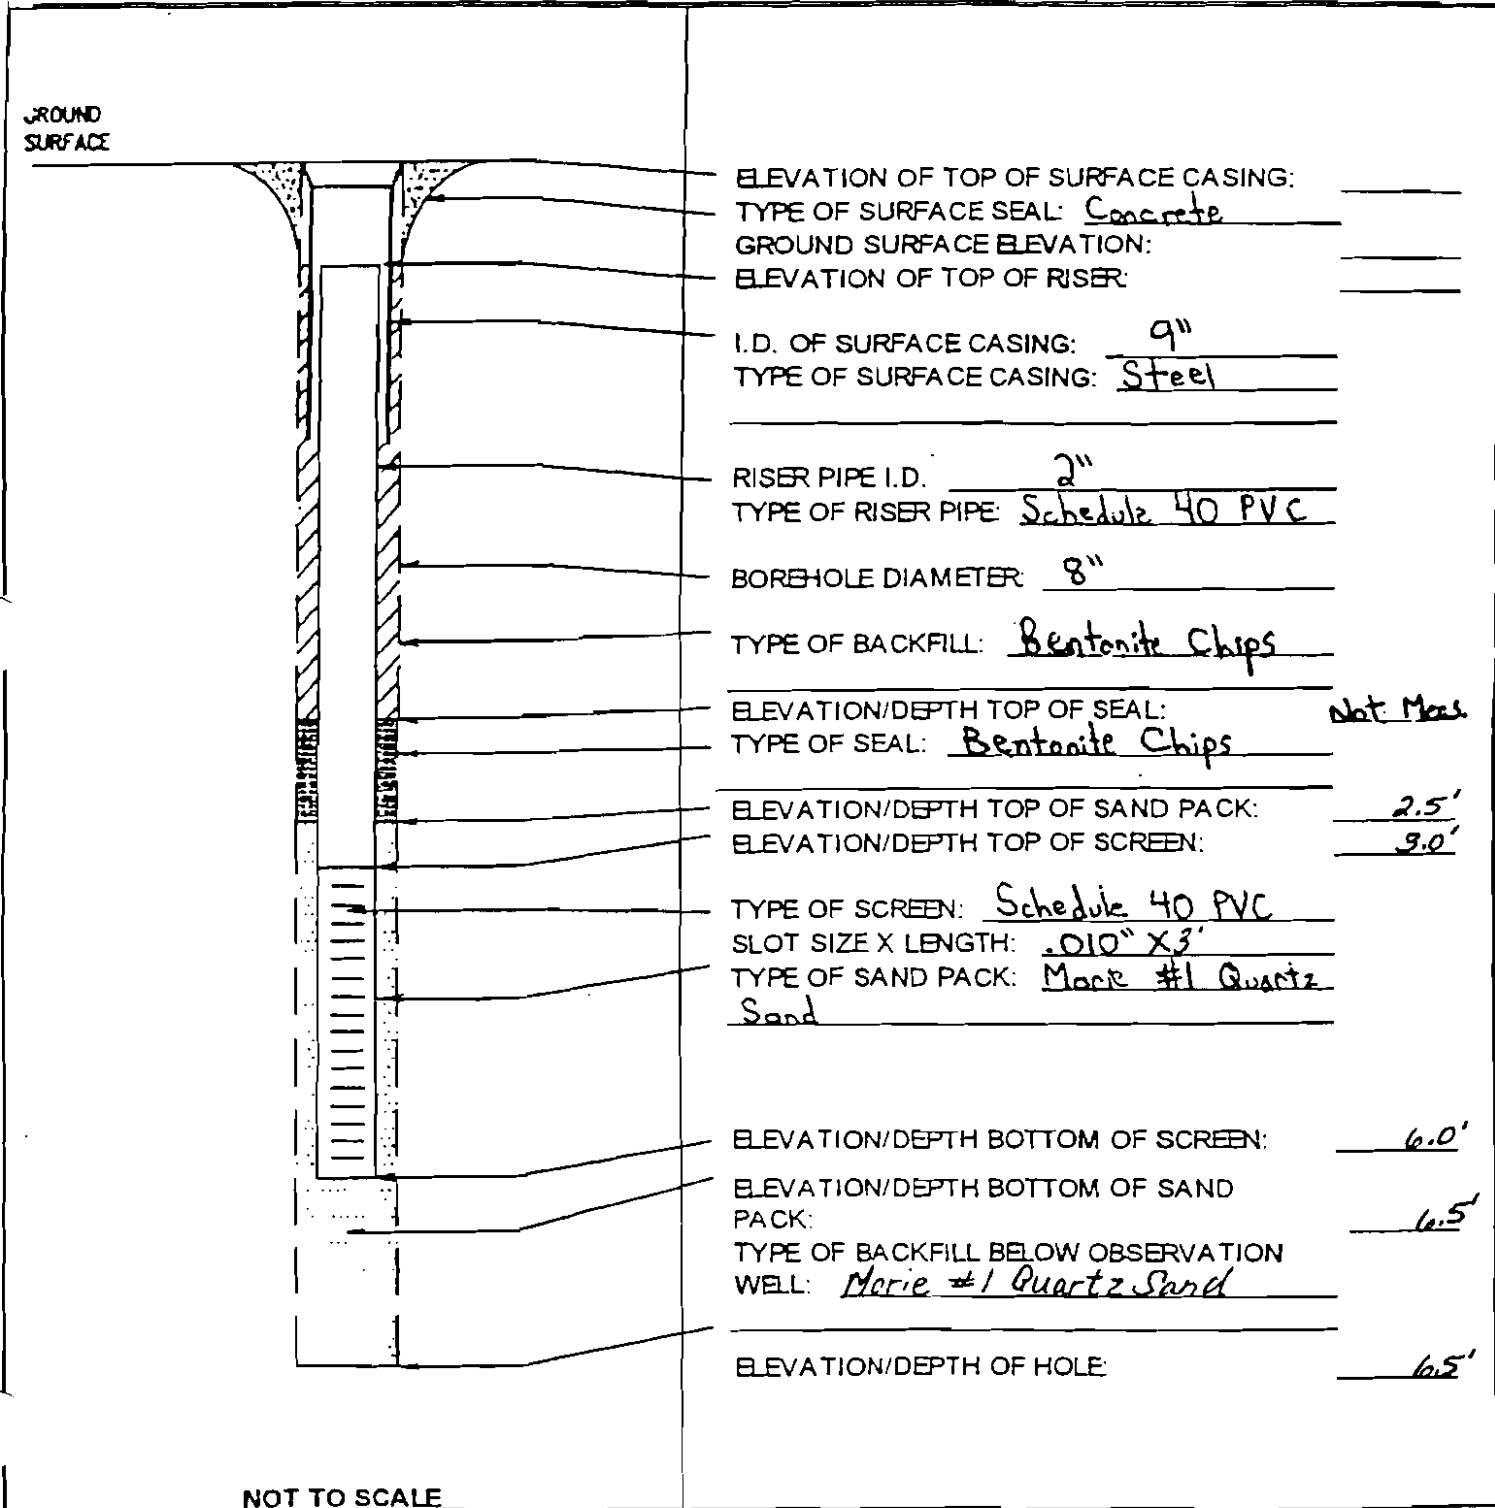 GROUND
SURFACE
ELEVATION OF TOP OF SURFACE CASING:
TYPE OF SURFACE SEAL: Concrete
GROUND SURFACE ELEVATION:
ELEVATION OF TOP OF RISER:
I.D. OF SURFACE CASING: 9"
TYPE OF SURFACE CASING: Steel
RISER PIPE I.D. 2"
TYPE OF RISER PIPE: Schedule 40 PVC
BOREHOLE DIAMETER: 8"
TYPE OF BACKFILL: Bentonite Chips
ELEVATION/DEPTH TOP OF SEAL: Not Meas.
TYPE OF SEAL: Bentonite Chips
ELEVATION/DEPTH TOP OF SAND PACK: 2.5'
ELEVATION/DEPTH TOP OF SCREEN: 3.0'
TYPE OF SCREEN: Schedule 40 PVC
SLOT SIZE X LENGTH: .010" X 3'
TYPE OF SAND PACK: Morie #1 Quartz
Sand
ELEVATION/DEPTH BOTTOM OF SCREEN: 6.0'
ELEVATION/DEPTH BOTTOM OF SAND
PACK: 6.5'
TYPE OF BACKFILL BELOW OBSERVATION
WELL: Morie #1 Quartz Sand
ELEVATION/DEPTH OF HOLE: 6.5'
NOT TO SCALE